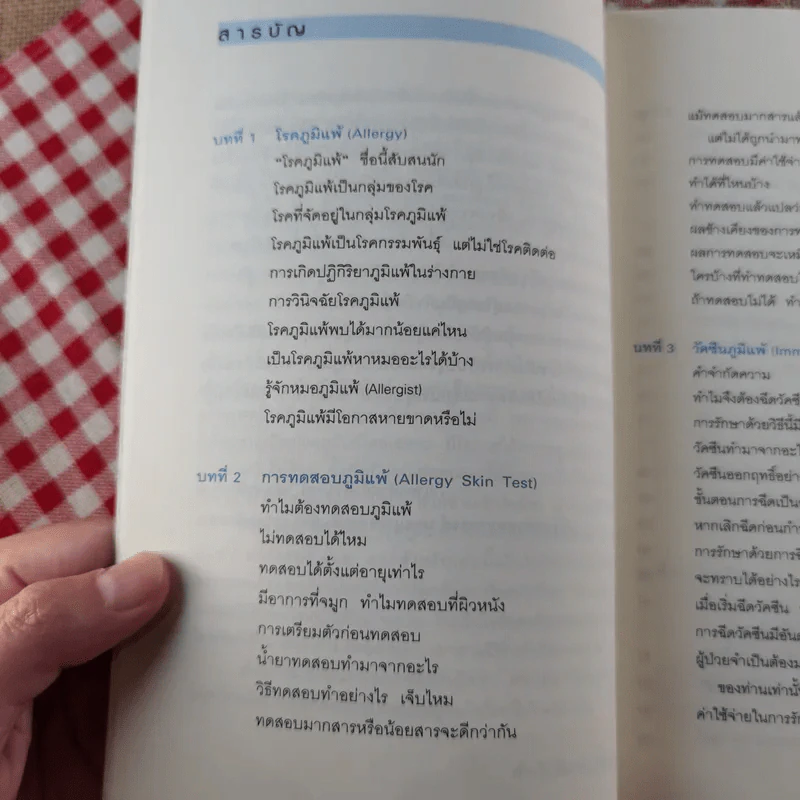 สารบัญ
บทที่ 1 โรคภูมิแพ้ (Allergy)
"โรคภูมิแพ้" ชื่อนี้สับสนนัก
โรคภูมิแพ้เป็นกลุ่มของโรค
โรคที่จัดอยู่ในกลุ่มโรคภูมิแพ้
โรคภูมิแพ้เป็นโรคกรรมพันธุ์ แต่ไม่ใช่โรคติดต่อ
การเกิดปฏิกิริยาภูมิแพ้ในร่างกาย
การวินิจฉัยโรคภูมิแพ้
โรคภูมิแพ้พบได้มากน้อยแค่ไหน
เป็นโรคภูมิแพ้หาหมออะไรได้บ้าง
รู้จักหมอภูมิแพ้ (Allergist)
โรคภูมิแพ้มีโอกาสหายขาดหรือไม่
บทที่ 2 การทดสอบภูมิแพ้ (Allergy Skin Test)
ทำไมต้องทดสอบภูมิแพ้
ไม่ทดสอบได้ไหม
ทดสอบได้ตั้งแต่อายุเท่าไร
มีอาการที่จมูก ทำไมทดสอบที่ผิวหนัง
การเตรียมตัวก่อนทดสอบ
น้ำยาทดสอบทำมาจากอะไร
วิธีทดสอบทำอย่างไร เจ็บไหม
ทดสอบมากสารหรือน้อยสารจะดีกว่ากัน
แม้ทดสอบมากสารแล้
แต่ไม่ได้ถูกนำมาท
การทดสอบมีค่าใช้จ่า
ทำได้ที่ไหนบ้าง
ทำทดสอบแล้วแปลว่
ผลข้างเคียงของการท
ผลการทดสอบจะเหมื
ใครบ้างที่ทำทดสอบไ
ถ้าทดสอบไม่ได้ ทำ
บทที่ 3 วัคซีนภูมิแพ้ (Imm
คำจำกัดความ
ทำไมจึงต้องฉีดวัคซี
การรักษาด้วยวิธีนี้มี
วัคซีนทำมาจากอะไ
วัคซีนออกฤทธิ์อย่า
ขั้นตอนการฉีดเป็น
หากเลิกฉีดก่อนกำ
การรักษาด้วยการฉี
จะทราบได้อย่างไร
เมื่อเริ่มฉีดวัคซีน
การฉีดวัคซีนมีอัน
ผู้ป่วยจำเป็นต้องม
ของท่านเท่านั้
ค่าใช้จ่ายในการรั